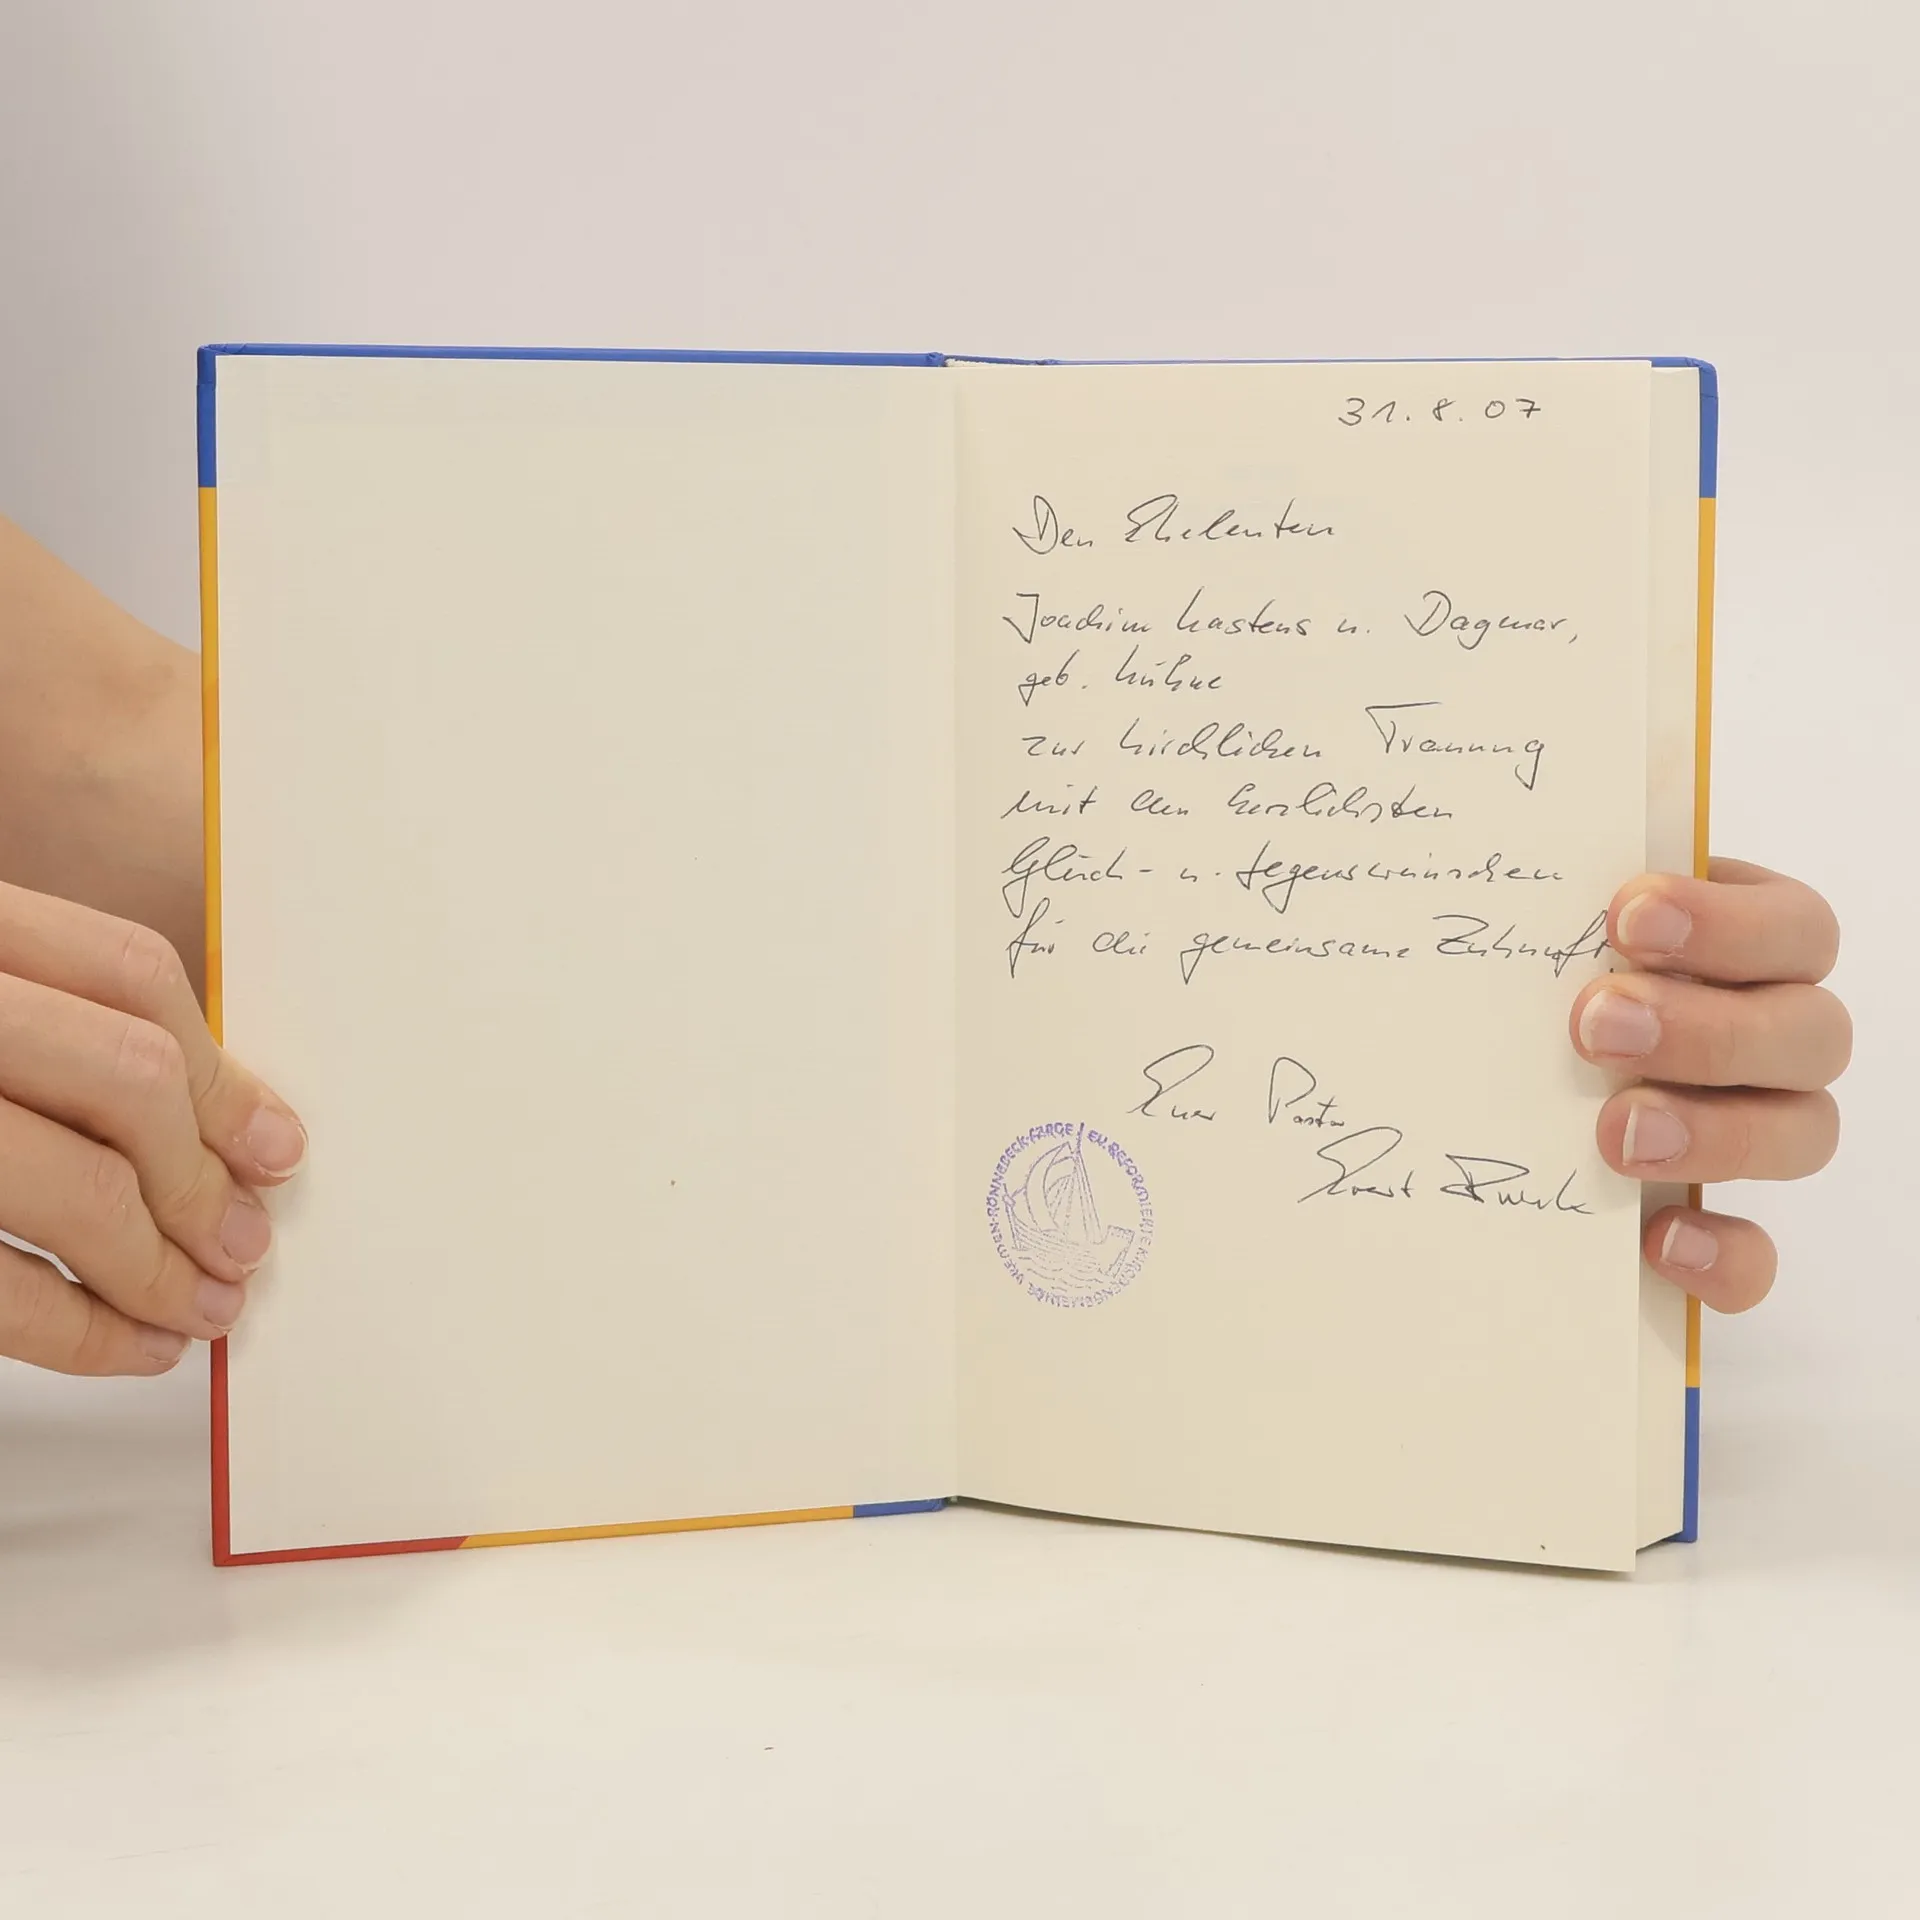 31.8.07
Den Eheleuten
Joachim Kastens u. Dagmar,
geb. Kühne
zur kirchlichen Trauung
mit den herzlichsten
Glück- u. Segenswünschen
für die gemeinsame Zukunft.
Euer Pastor
EV. REFORMIERTE KIRCHENGEMEINDE BREMEN-RÖNNEBECK-FARGE